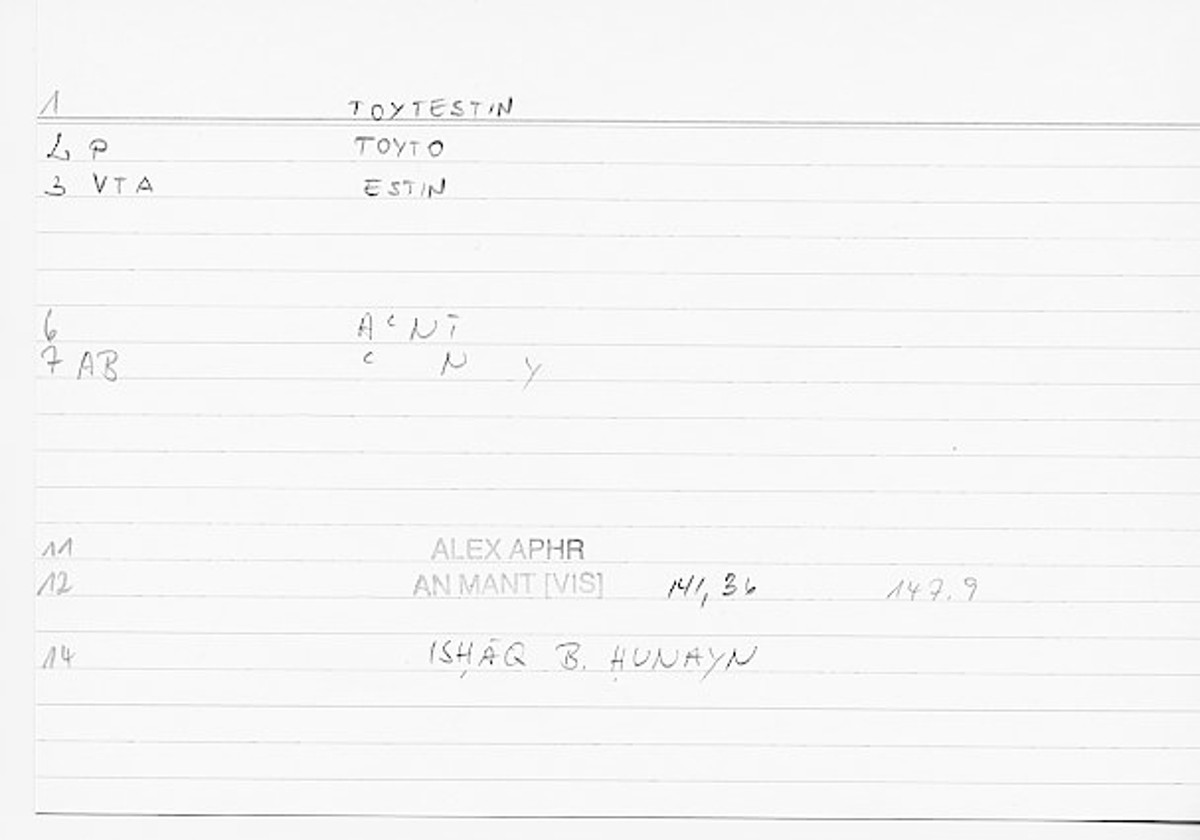 1 TOYTESTIN
2 P TOYTO
3 VTA ESTIN
6 A c N T
7 AB c N Y
11 ALEX APHR
12 AN MANT [VIS] 141, 36 147.9
14 ISḤĀQ B. ḤUNAYN